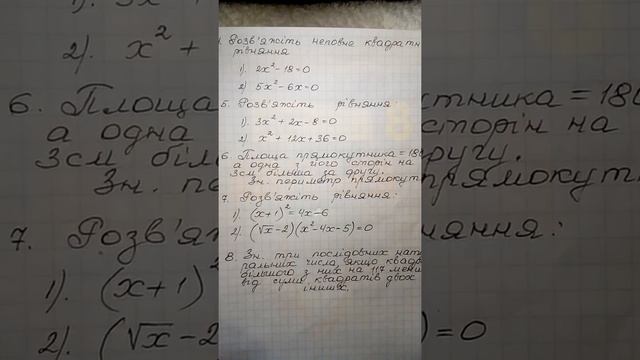 4. Розв'яжіть неповне квадратн
рівняння
1). 2x² - 18 = 0
2) 5x² - 6x = 0
5. Розв'яжіть рівняння:
1). 3x² + 2x - 8 = 0
2). x² + 12x + 36 = 0
6 Площа прямокутника = 180
а одна з його сторін на
3см більша за другу.
Зн. периметр прямокут
7. Розв'яжіть рівняння:
1). (x+1)² = 4x - 6
2). (√x - 2)(x² - 4x - 5) = 0
8. Зн. три послідовних нату
ральних числа, якщо квадра
більшого з них на 117 менш
від суми квадратів двох
інших.
2). x² +
6. Площа
а одна
3см біль
Зн.
7. Розв'я
1). (x+1)²
2). (√x - 2
утника = 180
сторін на
другу.
прямокут
вняння:
) = 0